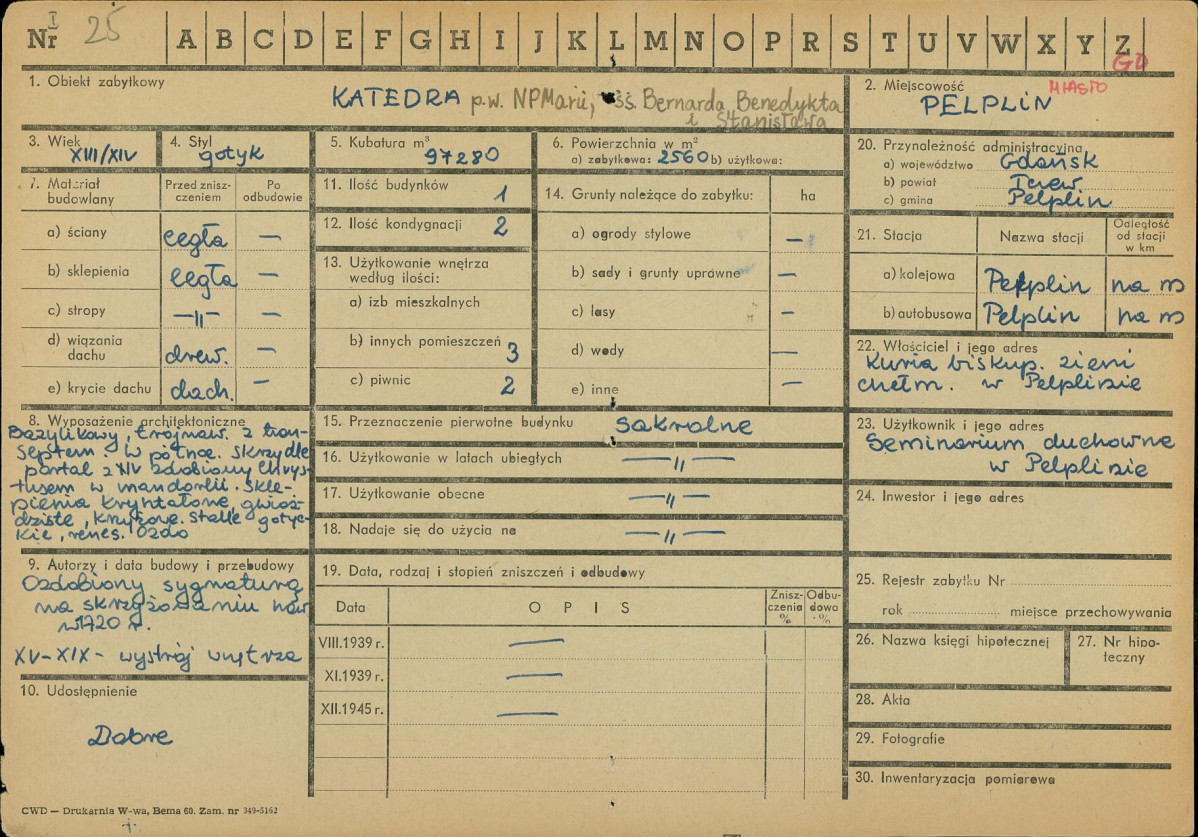 I
Nr 25 A B C D E F G H I J K L M N O P R S T U V W X Y Z
GD
1. Obiekt zabytkowy
KATEDRA p.w. NPMarii, śś. Bernarda, Benedykta
i Stanisława
2. Miejscowość MIASTO
PELPLIN
3. Wiek
XIII/XIV
4. Styl
gotyk
5. Kubatura m³
97280
6. Powierzchnia w m²
a) zabytkowa: 2560 b) użytkowa:
20. Przynależność administracyjna
a) województwo Gdańsk
b) powiat Tczew.
c) gmina Pelplin
7. Materiał budowlany
Przed znisz-
czeniem
Po
odbudowie
a) ściany cegła —
b) sklepienia cegła —
c) stropy —"— —
d) wiązania
dachu drew. —
e) krycie dachu dach. —
11. Ilość budynków 1
12. Ilość kondygnacji 2
13. Użytkowanie wnętrza
według ilości:
a) izb mieszkalnych
b) innych pomieszczeń 3
c) piwnic 2
14. Grunty należące do zabytku: ha
a) ogrody stylowe —
b) sady i grunty uprawne —
c) lasy —
d) wody —
e) inne —
21. Stacja
Nazwa stacji
Odległość
od stacji
w km
a) kolejowa Pelplin na m
b) autobusowa Pelplin na m
22. Właściciel i jego adres
Kuria biskup. ziemi
chełm. w Pelplinie
8. Wyposażenie architektoniczne
Bazylikowy, trójnaw. z tran-
septem. W północ. skrzydle
portal z XIV zdobiony Chrys-
tusem w mandorli. Skle-
pienia kryształowe, gwiaź-
dziste, krzyżowe. Stalle gotyc-
kie, renes. Ozdo
15. Przeznaczenie pierwotne budynku sakralne
16. Użytkowanie w latach ubiegłych —"—
17. Użytkowanie obecne —"—
18. Nadaje się do użycia na —"—
23. Użytkownik i jego adres
Seminarium duchowne
w Pelplinie
24. Inwestor i jego adres
9. Autorzy i data budowy i przebudowy
Ozdobiony sygnaturą
na skrzyżowaniu naw
w 1720 r.
XV-XIX- wystrój wnętrza
10. Udostępnienie
Dobre
19. Data, rodzaj i stopień zniszczeń i odbudowy
Data
OPIS
Znisz-
czenia
%
Odbu-
dowa
%
VIII.1939 r. —
XI.1939 r. —
XII.1945 r. —
25. Rejestr zabytku Nr
rok miejsce przechowywania
26. Nazwa księgi hipotecznej
27. Nr hipo-
teczny
28. Akta
29. Fotografie
30. Inwentaryzacja pomiarowa
CWD — Drukarnia W-wa, Bema 60. Zam. nr 349-5162